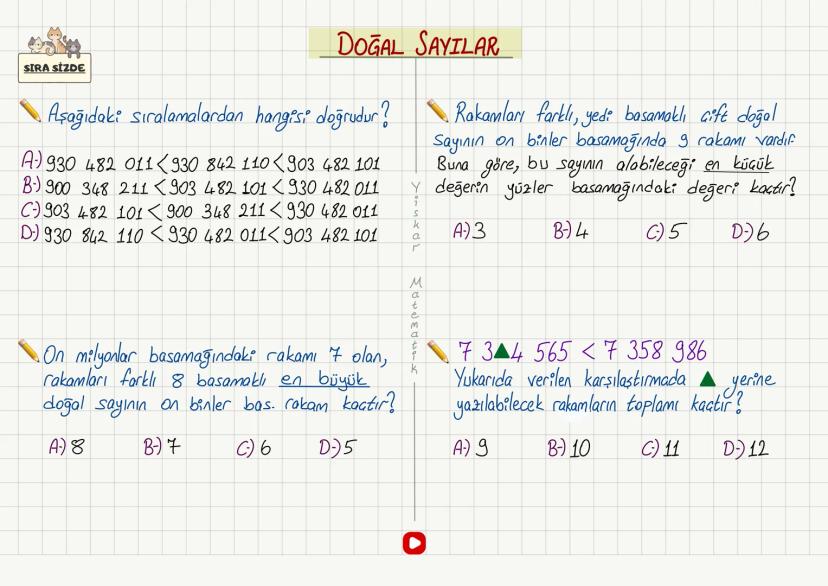 DOĞAL SAYILAR
SIRA SİZDE
Aşağıdaki sıralamalardan hangisi doğrudur?
A-) 930 482 011 < 930 842 110 < 903 482 101
B-) 900 348 211 < 903 482 101 < 930 482 011
C-) 903 482 101 < 900 348 211 < 930 482 011
D-) 930 842 110 < 930 482 011 < 903 482 101
Rakamları farklı, yedi basamaklı çift doğal
sayının on binler basamağında 9 rakamı vardır.
Buna göre, bu sayının alabileceği en küçük
değerin yüzler basamağındaki değeri kaçtır?
A-) 3 B-) 4 C-) 5 D-) 6
On milyonlar basamağındaki rakamı 7 olan,
rakamları farklı 8 basamaklı en büyük
doğal sayının on binler bas. rakam kaçtır?
A-) 8 B-) 7 C-) 6 D-) 5
7 3▲4 565 < 7 358 986
Yukarıda verilen karşılaştırmada ▲ yerine
yazılabilecek rakamların toplamı kaçtır?
A-) 9 B-) 10 C-) 11 D-) 12
Yiskar Matematik